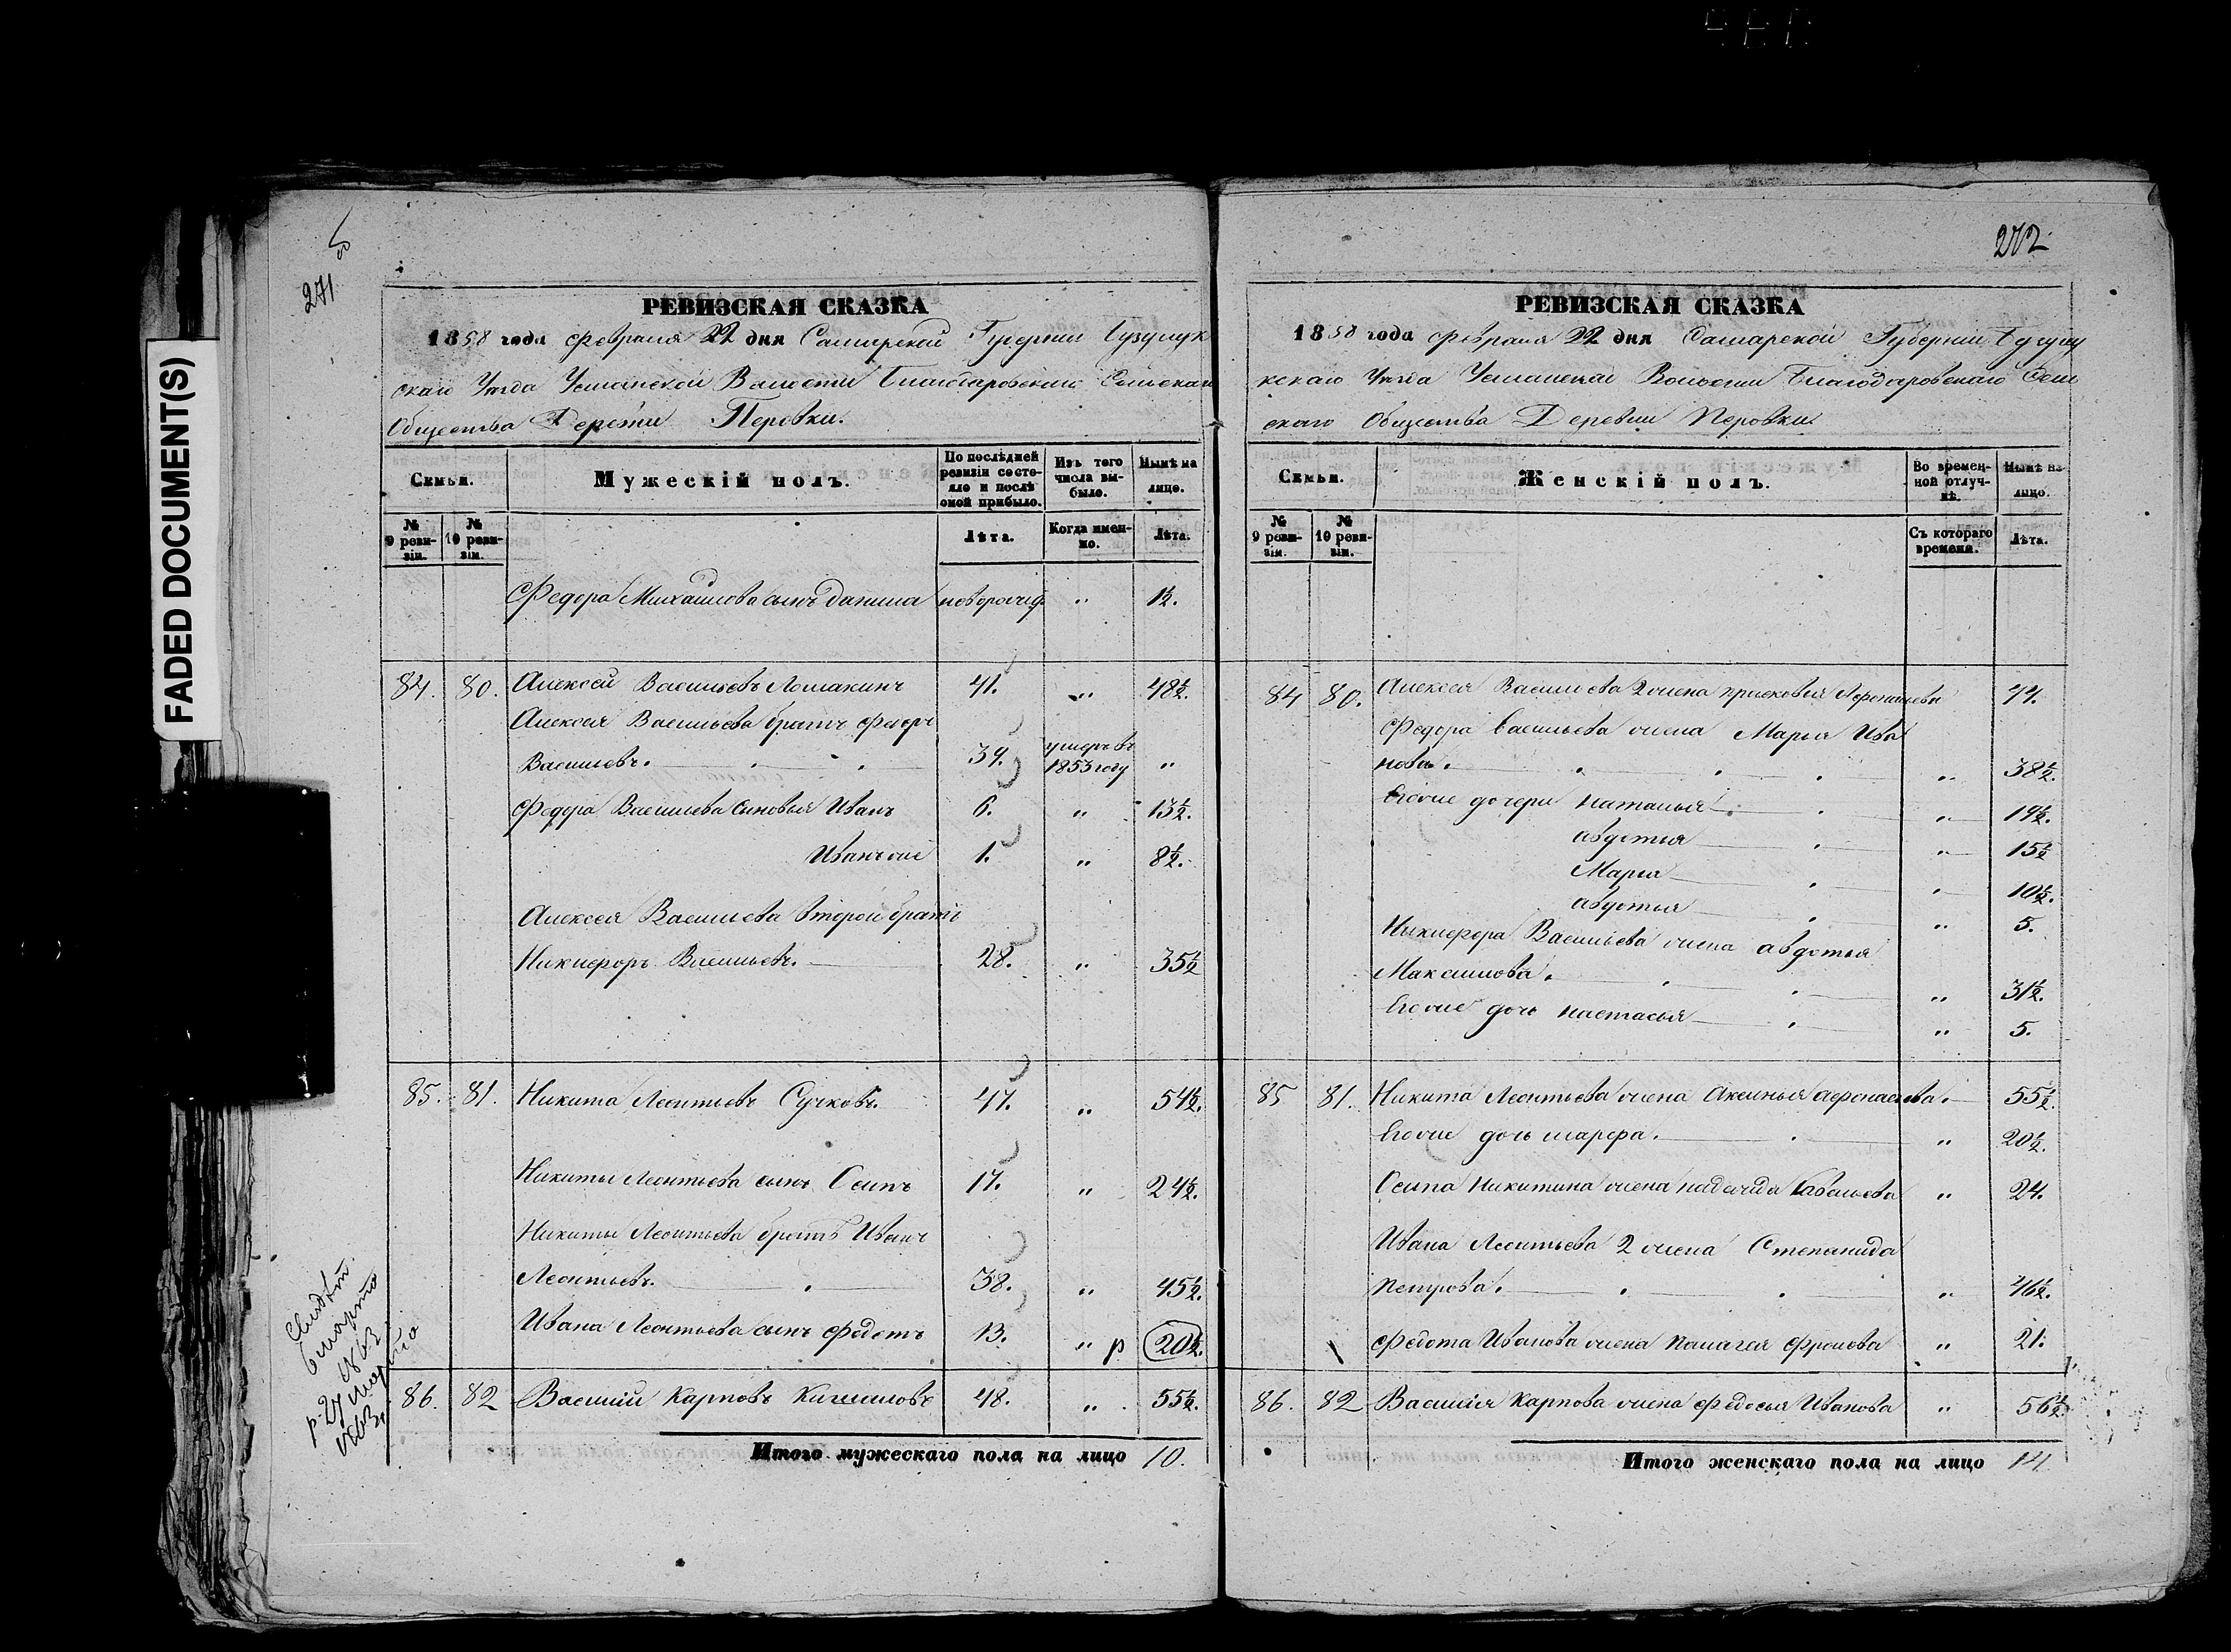 FADED DOCUMENT(S)
271
РЕВИЗСКАЯ СКАЗКА
1858 года Февраля 22 дня Самарской Губернии Бузулук
скаго Уезда Усманской Волости Благодаровскаго Сельскаго
Общества Деревни Перовки.
Семьи.
Мужескій полъ.
По послѣдней ревизіи состояло и послѣ оной прибыло.
Изъ того числа выбыло.
Нынѣ на лицо.
№ 9 ревизіи.
№ 10 ревизіи.
Лѣта.
Когда именно.
Лѣта.
Федора Михайлова сынъ Данила новорожд. " 1½.
84. 80. Алексей Васильевъ Ломакинъ 41. " 48½.
Алексея Васильева братъ Федоръ
Васильевъ. 34. умеръ въ 1853 году "
Федора Васильева сыновья Иванъ 6. " 13½.
Иванъ же 1. " 8½.
Алексея Васильева второй братъ
Никифоръ Васильевъ. 28. " 35½
85. 81. Никита Леонтьевъ Сучковъ. 47. " 54½.
Никиты Леонтьева сынъ Осипъ 17. " 24½.
Никиты Леонтьева братъ Иванъ
Леонтьевъ. 38. " 45½.
Ивана Леонтьева сынъ Федотъ 13. " р 20½.
86. 82 Василий Карповъ 48. " 55½.
Итого мужескаго пола на лицо 10.
марта
1863
р. 27 марта
1863
272
РЕВИЗСКАЯ СКАЗКА
1858 года Февраля 22 дня Самарской Губернии Бузулу
кскаго Уезда Усманской Волости Благодаровскаго Сель
скаго Общества Деревни Перовки
Семьи.
Женскій полъ.
Во временной отлучкѣ.
Нынѣ на лицо.
№ 9 ревизіи.
№ 10 ревизіи.
Съ котораго времени.
Лѣта.
84 80. Алексея Васильева 2 жена Прасковья Афонасьева 44.
Федора Васильева жена Марья Ива
нова. " 38½.
Егоже дочери Наталья " 19½.
Авдотья " 15½
Марья " 10½.
Авдотья " 5.
Никифора Васильева жена Авдотья
Максимова. " 31½.
Егоже дочь Настасья " 5.
85 81. Никита Леонтьева жена Аксинья Афонасьева. 55½.
Егоже дочь Марфа. " 20½.
Осипа Никитина жена Надежда Савельева " 24.
Ивана Леонтьева 2 жена Степанида
Петрова. " 46½.
Федота Иванова жена Палагея Фролова " 21.
86. 82 Василия Карпова жена Федосья Иванова " 56½.
Итого женскаго пола на лицо 14